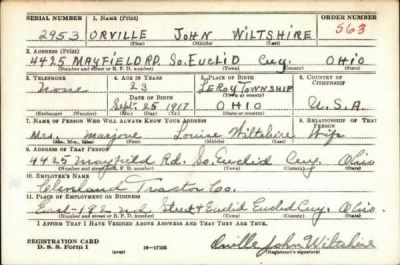 SERIAL NUMBER 1. NAME (Print) ORDER NUMBER
2953 ORVILLE JOHN WILTSHIRE 563
(First) (Middle) (Last)
2. ADDRESS (Print)
4425 MAYFIELD RD. SO. EUCLID Cuy. OHIO
(Number and street or R. F. D. number) (Town) (County) (State)
3. TELEPHONE 4. AGE IN YEARS 5. PLACE OF BIRTH 6. COUNTRY OF CITIZENSHIP
None 23 LEROY TOWNSHIP
DATE OF BIRTH (Town or county)
Sept. 25 1917 OHIO U.S.A.
(Exchange) (Number) (Mo.) (Day) (Yr.) (State or country)
7. NAME OF PERSON WHO WILL ALWAYS KNOW YOUR ADDRESS 8. RELATIONSHIP OF THAT PERSON
Mrs. Marjorie Louise Wiltshire Wife
(Mr., Mrs., Miss) (First) (Middle) (Last)
9. ADDRESS OF THAT PERSON
4425 Mayfield Rd. So. Euclid Cuy. Ohio
(Number and street or R. F. D. number) (Town) (County) (State)
10. EMPLOYER'S NAME
Cleveland Tractor Co.
11. PLACE OF EMPLOYMENT OR BUSINESS
East-192nd Street & Euclid Euclid Cuy. Ohio.
(Number and street or R. F. D. number) (Town) (County) (State)
I AFFIRM THAT I HAVE VERIFIED ABOVE ANSWERS AND THAT THEY ARE TRUE.
REGISTRATION CARD
D. S. S. Form 1 (over) 16-17105
Orville John Wiltshire
(Registrant's signature)